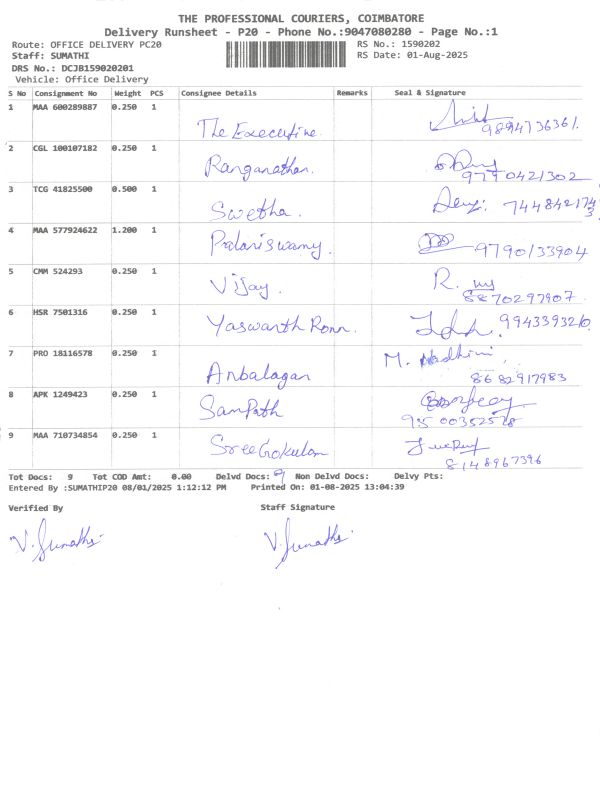 THE PROFESSIONAL COURIERS, COIMBATORE
Delivery Runsheet - P20 - Phone No.:9047080280 - Page No.:1
Route: OFFICE DELIVERY PC20 RS No.: 1590202
Staff: SUMATHI RS Date: 01-Aug-2025
DRS No.: DCJB159020201
Vehicle: Office Delivery
S No Consignment No Weight PCS Consignee Details Remarks Seal & Signature
1 MAA 600289887 0.250 1 The Executine
2 CGL 100107182 0.250 1 Ranganathan. 9790421302
3 TCG 41825500 0.500 1 Swetha.
4 MAA 577924622 1.200 1 Palaniswamy. 9790133904
5 CMM 524293 0.250 1 Vijay. R.
8870297907
6 HSR 7501316 0.250 1 Yaswanth Ronn. 9943393260
7 PRO 18116578 0.250 1 Anbalagan M. Nadhini,
8682917983
8 APK 1249423 0.250 1 Sampath
9500352578
9 MAA 710734854 0.250 1 Sree Gokulam
8148967396
Tot Docs: 9 Tot COD Amt: 0.00 Delvd Docs: 9 Non Delvd Docs: Delvy Pts:
Entered By :SUMATHIP20 08/01/2025 1:12:12 PM Printed On: 01-08-2025 13:04:39
Verified By Staff Signature
V. Sumathi V. Sumathi